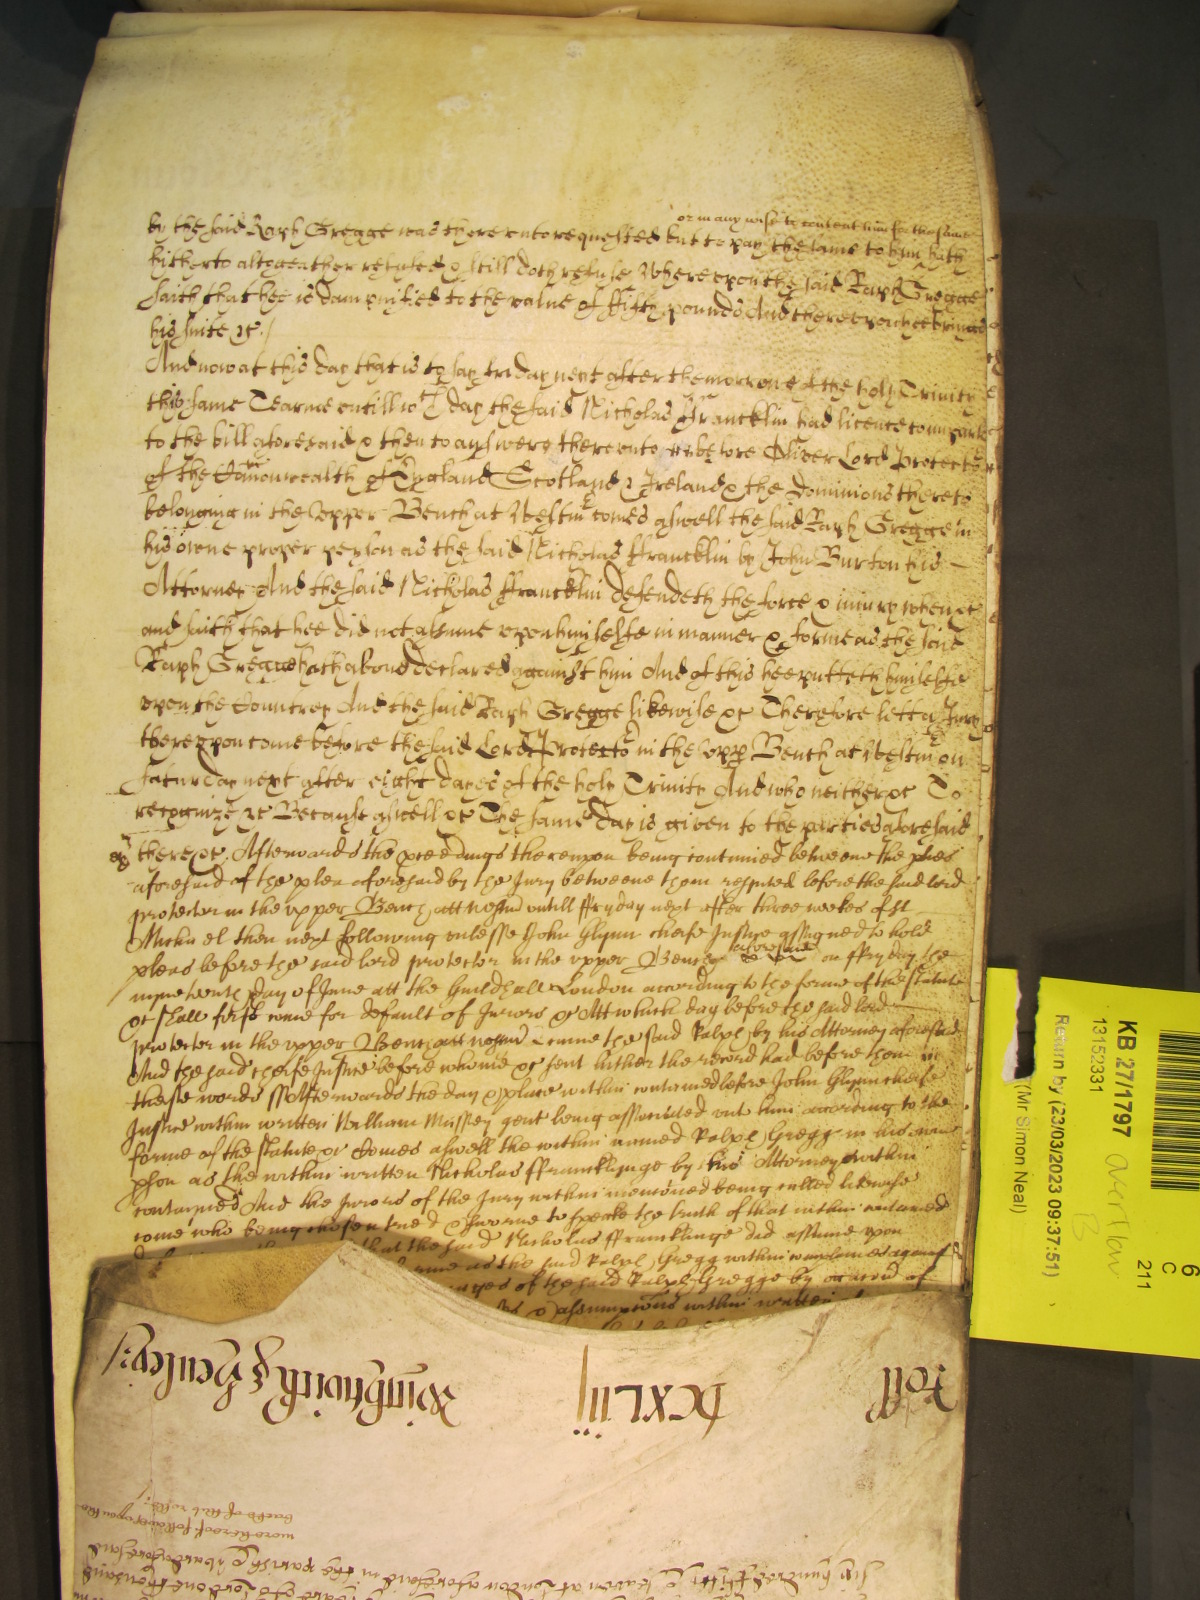 or in any wise to content him for the same
by the said Raph Gregge was there unto requested but to pay the same to him hath
hitherto altogeather refused & still doth refuse Whereupon the said Raph Gregge
saith that hee is dampnified to the value of ffifty pounds And thereupon hee brings
his suite &c./
And now at this day that is to say fryday next after the morrowe of the holy Trinity
this same Tearme untill wch day the said Nicholas ffrancklin had licence to imparle
to the bill aforesaid & then to answere thereunto &c before Oliver Lord Protector
of the Comonwealth of England Scotland & Ireland & the Dominions thereto
belonging in the Upper Bench at Westmr comes aswell the said Raph Gregge in
his owne proper person as the said Nicholas ffrancklin by John Burton his
Attorney And the said Nicholas ffrancklin defendeth the force & iniury when &c
and saith that hee did not assume upon himselfe in manner & forme as the said
Raph Gregge hath above declared against him And of this hee putteth himselfe
upon the Countrey And the said Raph Gregge likewise &c Therefore lett a Jury
thereupon come before the said Lord Protector in the Upp Bench at Westmr on
saturday next after eight dayes of the holy Trinity And who neither &c To
recognize &c Because aswell &c The same day is given to the parties aforesaid
there &c. Afterwards the pceedings thereupon being continued betweene the pties
aforesaid of the plea aforesaid by the Jury betweene them respited before the said lord
protector in the upper Bench att Westmr untill ffryday next after three weekes of St
Michael then next following unlesse John Glynn cheife Justice assigned to hold
pleas before the said lord protector in the upper Bench aforesaid on ffryday the
nyneteenth day of June att the Guildhall London according to the forme of the statute
&c shall first come for default of Jurors &c Att which day before the said lord
protector in the upper Bench att Westmr came the said Ralph by his Attorney aforesaid
And the said cheife Justice before whome &c sent hither the record had before them in
theise words ss Afterwards the day & place within conteined before John Glynn cheife
Justice within written William Mussey gent being associated unto him according to the
forme of the statute &c Comes aswell the within named Ralph Gregg in his owne
pson as the within written Nicholas ffrancklynge by his Attorney within
contayned And the Jurors of the Jury within mencioned being called likewise
come who being chosen tried & sworne to speake the truth of that within conteined
that the said Nicholas ffrancklinge did assume upon
as the said Ralph Gregg within complaines against
of the said Ralph Gregge by occasion of
& assumptions within written
Roll
DCXLiii
Wightwick & Henley:/
more hereof followes upon the
back of this roll:/
six hundred ffifty & seaven at London aforesaid in the parish & ward aforesaid
yeare of or Lord one thousand
KB 27/1797 overflow
B
13152331
Return by (23/03/2023 09:37:51)
(Mr Simon Neal)
6
C
211